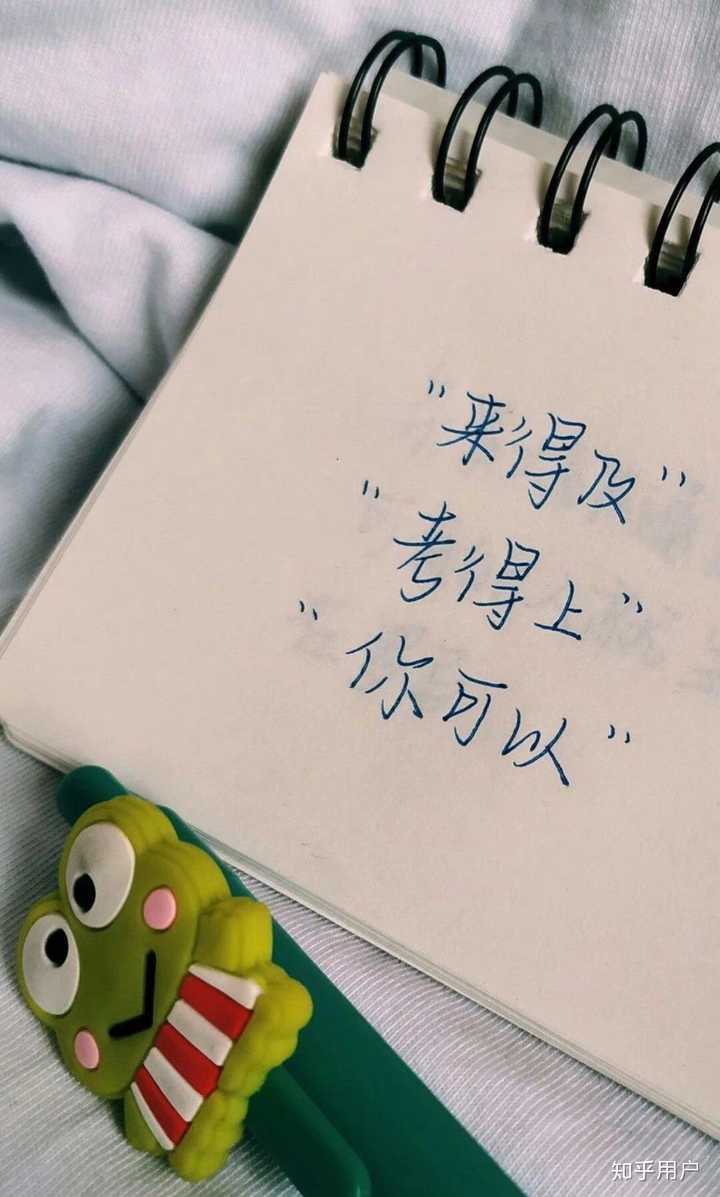 "来得及"
"考得上"
"你可以"
知乎用户